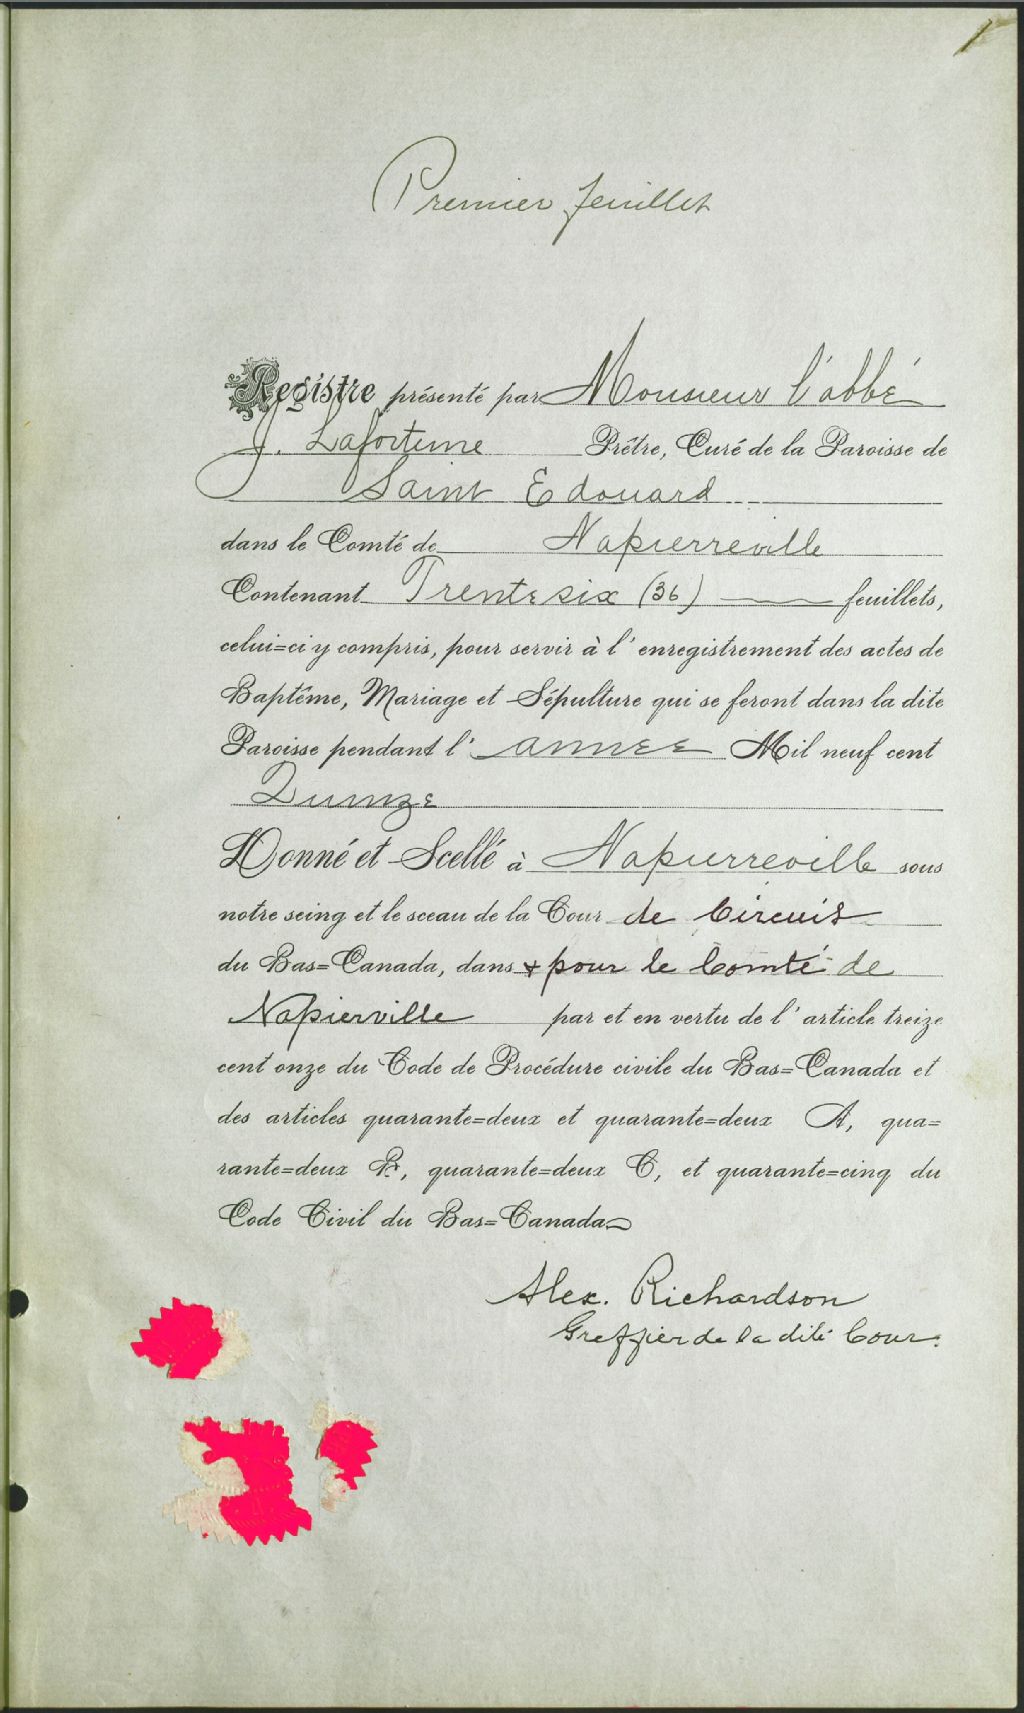 1
Premier feuillet
Registre présenté par Monsieur l'abbé
J. Lafortune Prêtre, Curé de la Paroisse de
Saint Edouard
dans le Comté de Napierreville
Contenant Trente six (36) feuillets,
celui=ci y compris, pour servir à l'enregistrement des actes de
Baptême, Mariage et Sépulture qui se feront dans la dite
Paroisse pendant l'année Mil neuf cent
Quinze
Donné et Scellé à Napierreville sous
notre seing et le sceau de la Cour de Circuit
du Bas=Canada, dans & pour le Comté de
Napierville par et en vertu de l'article treize
cent onze du Code de Procédure civile du Bas=Canada et
des articles quarante=deux et quarante=deux A, qua=
rante=deux B, quarante=deux C, et quarante=cinq du
Code Civil du Bas=Canada
Alex. Richardson
Greffier de la dite Cour.